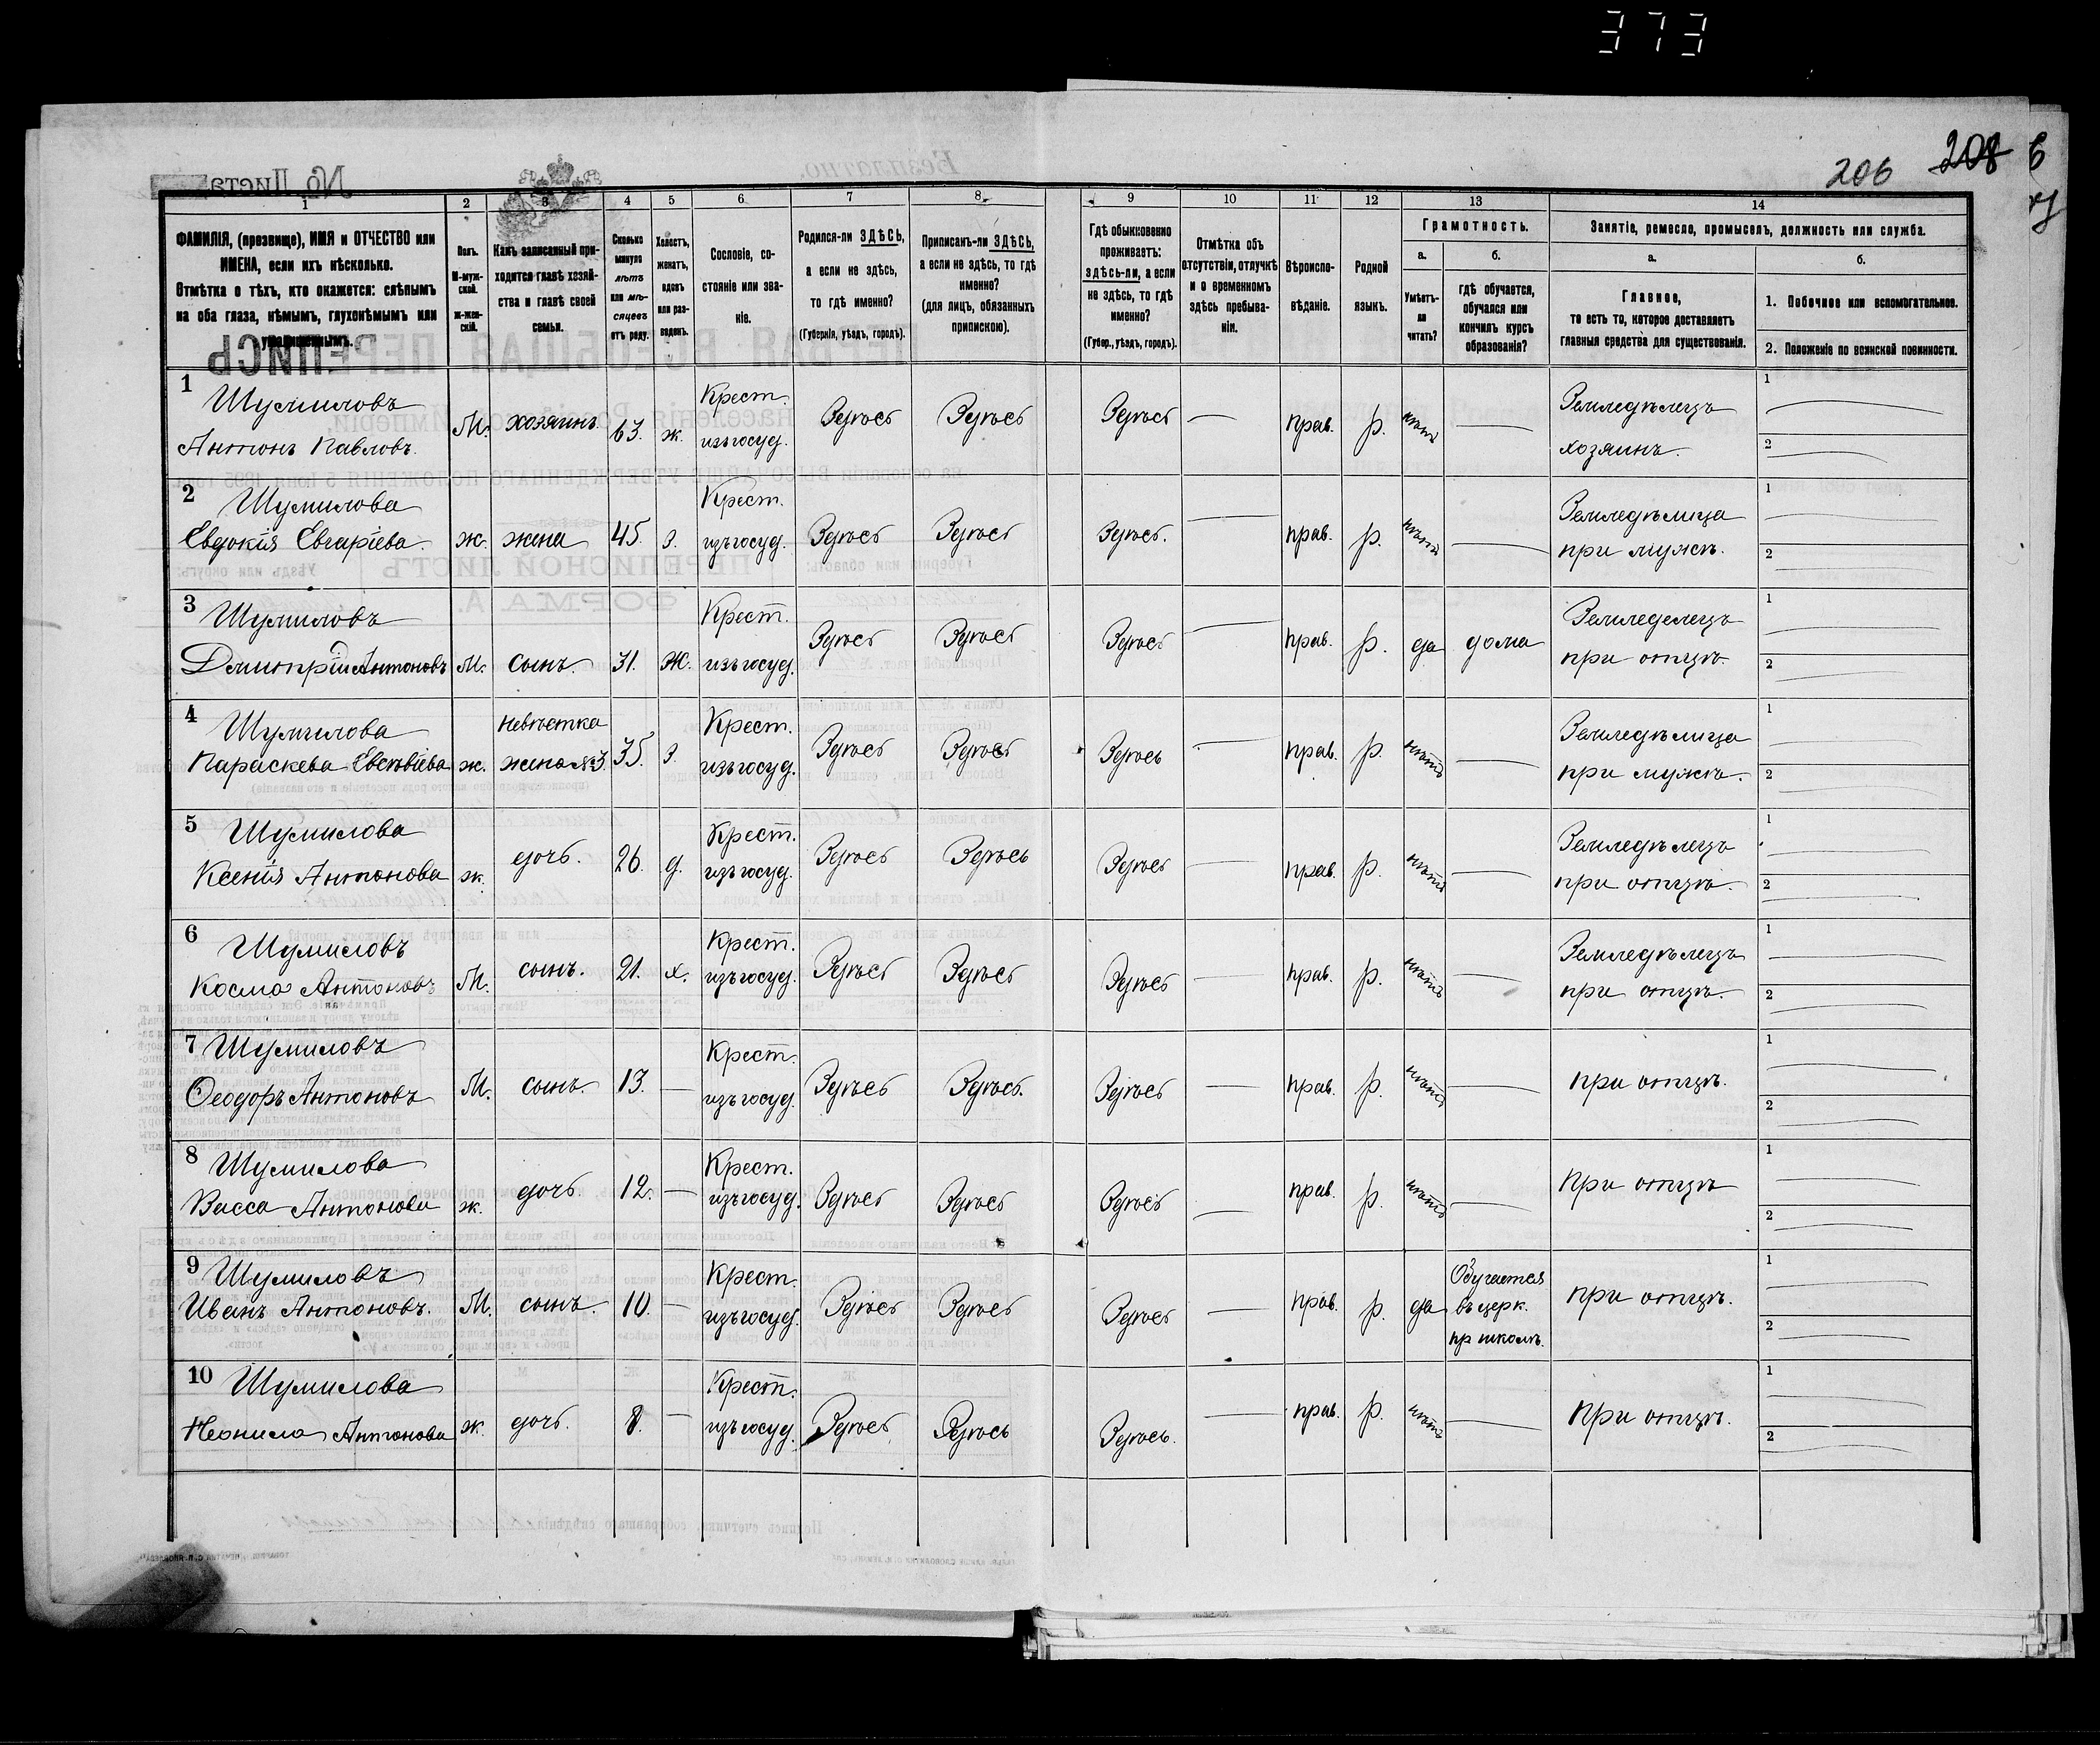 373
206 208 6
1 2 3 4 5 6 7 8 9 10 11 12 13 14
ФАМИЛІЯ, (прозвище), ИМЯ и ОТЧЕСТВО или ИМЕНА, если ихъ нѣсколько.
Отмѣтка о тѣхъ, кто окажется: слѣпымъ на оба глаза, нѣмымъ, глухонѣмымъ или умалишеннымъ.
Полъ. М-мужской. Ж-женскій.
Какъ записанный приходится главѣ хозяйства и главѣ своей семьи.
Сколько минуло лѣтъ или мѣсяцевъ отъ роду.
Холостъ, женатъ, вдовъ или разведенъ.
Сословіе, состояніе или званіе.
Родился-ли ЗДѢСЬ, а если не здѣсь, то гдѣ именно? (Губернія, уѣздъ, городъ).
Приписанъ-ли ЗДѢСЬ, а если не здѣсь, то гдѣ именно? (для лицъ, обязанныхъ припискою).
Гдѣ обыкновенно проживаетъ: здѣсь-ли, а если не здѣсь, то гдѣ именно? (Губер., уѣздъ, городъ).
Отмѣтка объ отсутствіи, отлучкѣ и о временномъ здѣсь пребываніи.
Вѣроисповѣданіе.
Родной языкъ.
Грамотность.
а. Умѣетъ-ли читать?
б. гдѣ обучается, обучался или кончилъ курсъ образованія?
Занятіе, ремесло, промыселъ, должность или служба.
а. Главное, то есть то, которое доставляетъ главныя средства для существованія.
б. 1. Побочное или вспомогательное.
2. Положеніе по воинской повинности.
1 Шумиловъ Крест. Земледѣлецъ 1
Антонъ Павловъ. М. хозяинъ 63. ж. изъ госуд. Здѣсь Здѣсь Здѣсь — прав. р. нѣтъ — хозяинъ. 2
2 Шумилова Крест. Земледѣлица 1
Евдокія Евгаріева. ж. жена 45. з. изъ госуд. Здѣсь Здѣсь Здѣсь. — прав. р. нѣтъ — при мужѣ. 2
3 Шумиловъ Крест. Земледелецъ 1
Дмитрій Антоновъ М. сынъ. 31. Ж. изъ госуд. Здѣсь Здѣсь Здѣсь — прав. р. да дома при отцѣ. 2
4 Шумилова невѣстка Крест. Земледѣлица 1
Параскева ж. жена №3. 35. з. изъ госуд. Здѣсь Здѣсь Здѣсь — прав. р. нѣтъ — при мужѣ. 2
5 Шумилова Крест. Земледѣлецъ 1
Ксенія Антонова ж. дочь. 26. д. изъ госуд. Здѣсь Здѣсь Здѣсь — прав. р. нѣтъ — при отцѣ. 2
6 Шумиловъ Крест. Земледѣлецъ 1
Косма Антоновъ М. сынъ. 21. х. изъ госуд. Здѣсь Здѣсь Здѣсь — прав. р. нѣтъ — при отцѣ. 2
7 Шумиловъ Крест. 1
Ѳеодоръ Антоновъ М. сынъ. 13. — изъ госуд. Здѣсь Здѣсь. Здѣсь — прав. р. нѣтъ — при отцѣ. 2
8 Шумилова Крест. 1
Васса Антонова ж. дочь. 12. — изъ госуд. Здѣсь Здѣсь Здѣсь — прав. р. нѣтъ — При отцѣ 2
9 Шумиловъ Крест. Обучается 1
Иванъ Антоновъ. М. сынъ. 10. — изъ госуд. Здѣсь Здѣсь Здѣсь — прав. р. да въ церк. при отцѣ. 2
пр школѣ.
10 Шумилова Крест. 1
Неонила Антонова ж. дочь. 8. — изъ госуд. Здѣсь Здѣсь Здѣсь. — прав. р. нѣтъ — При отцѣ. 2